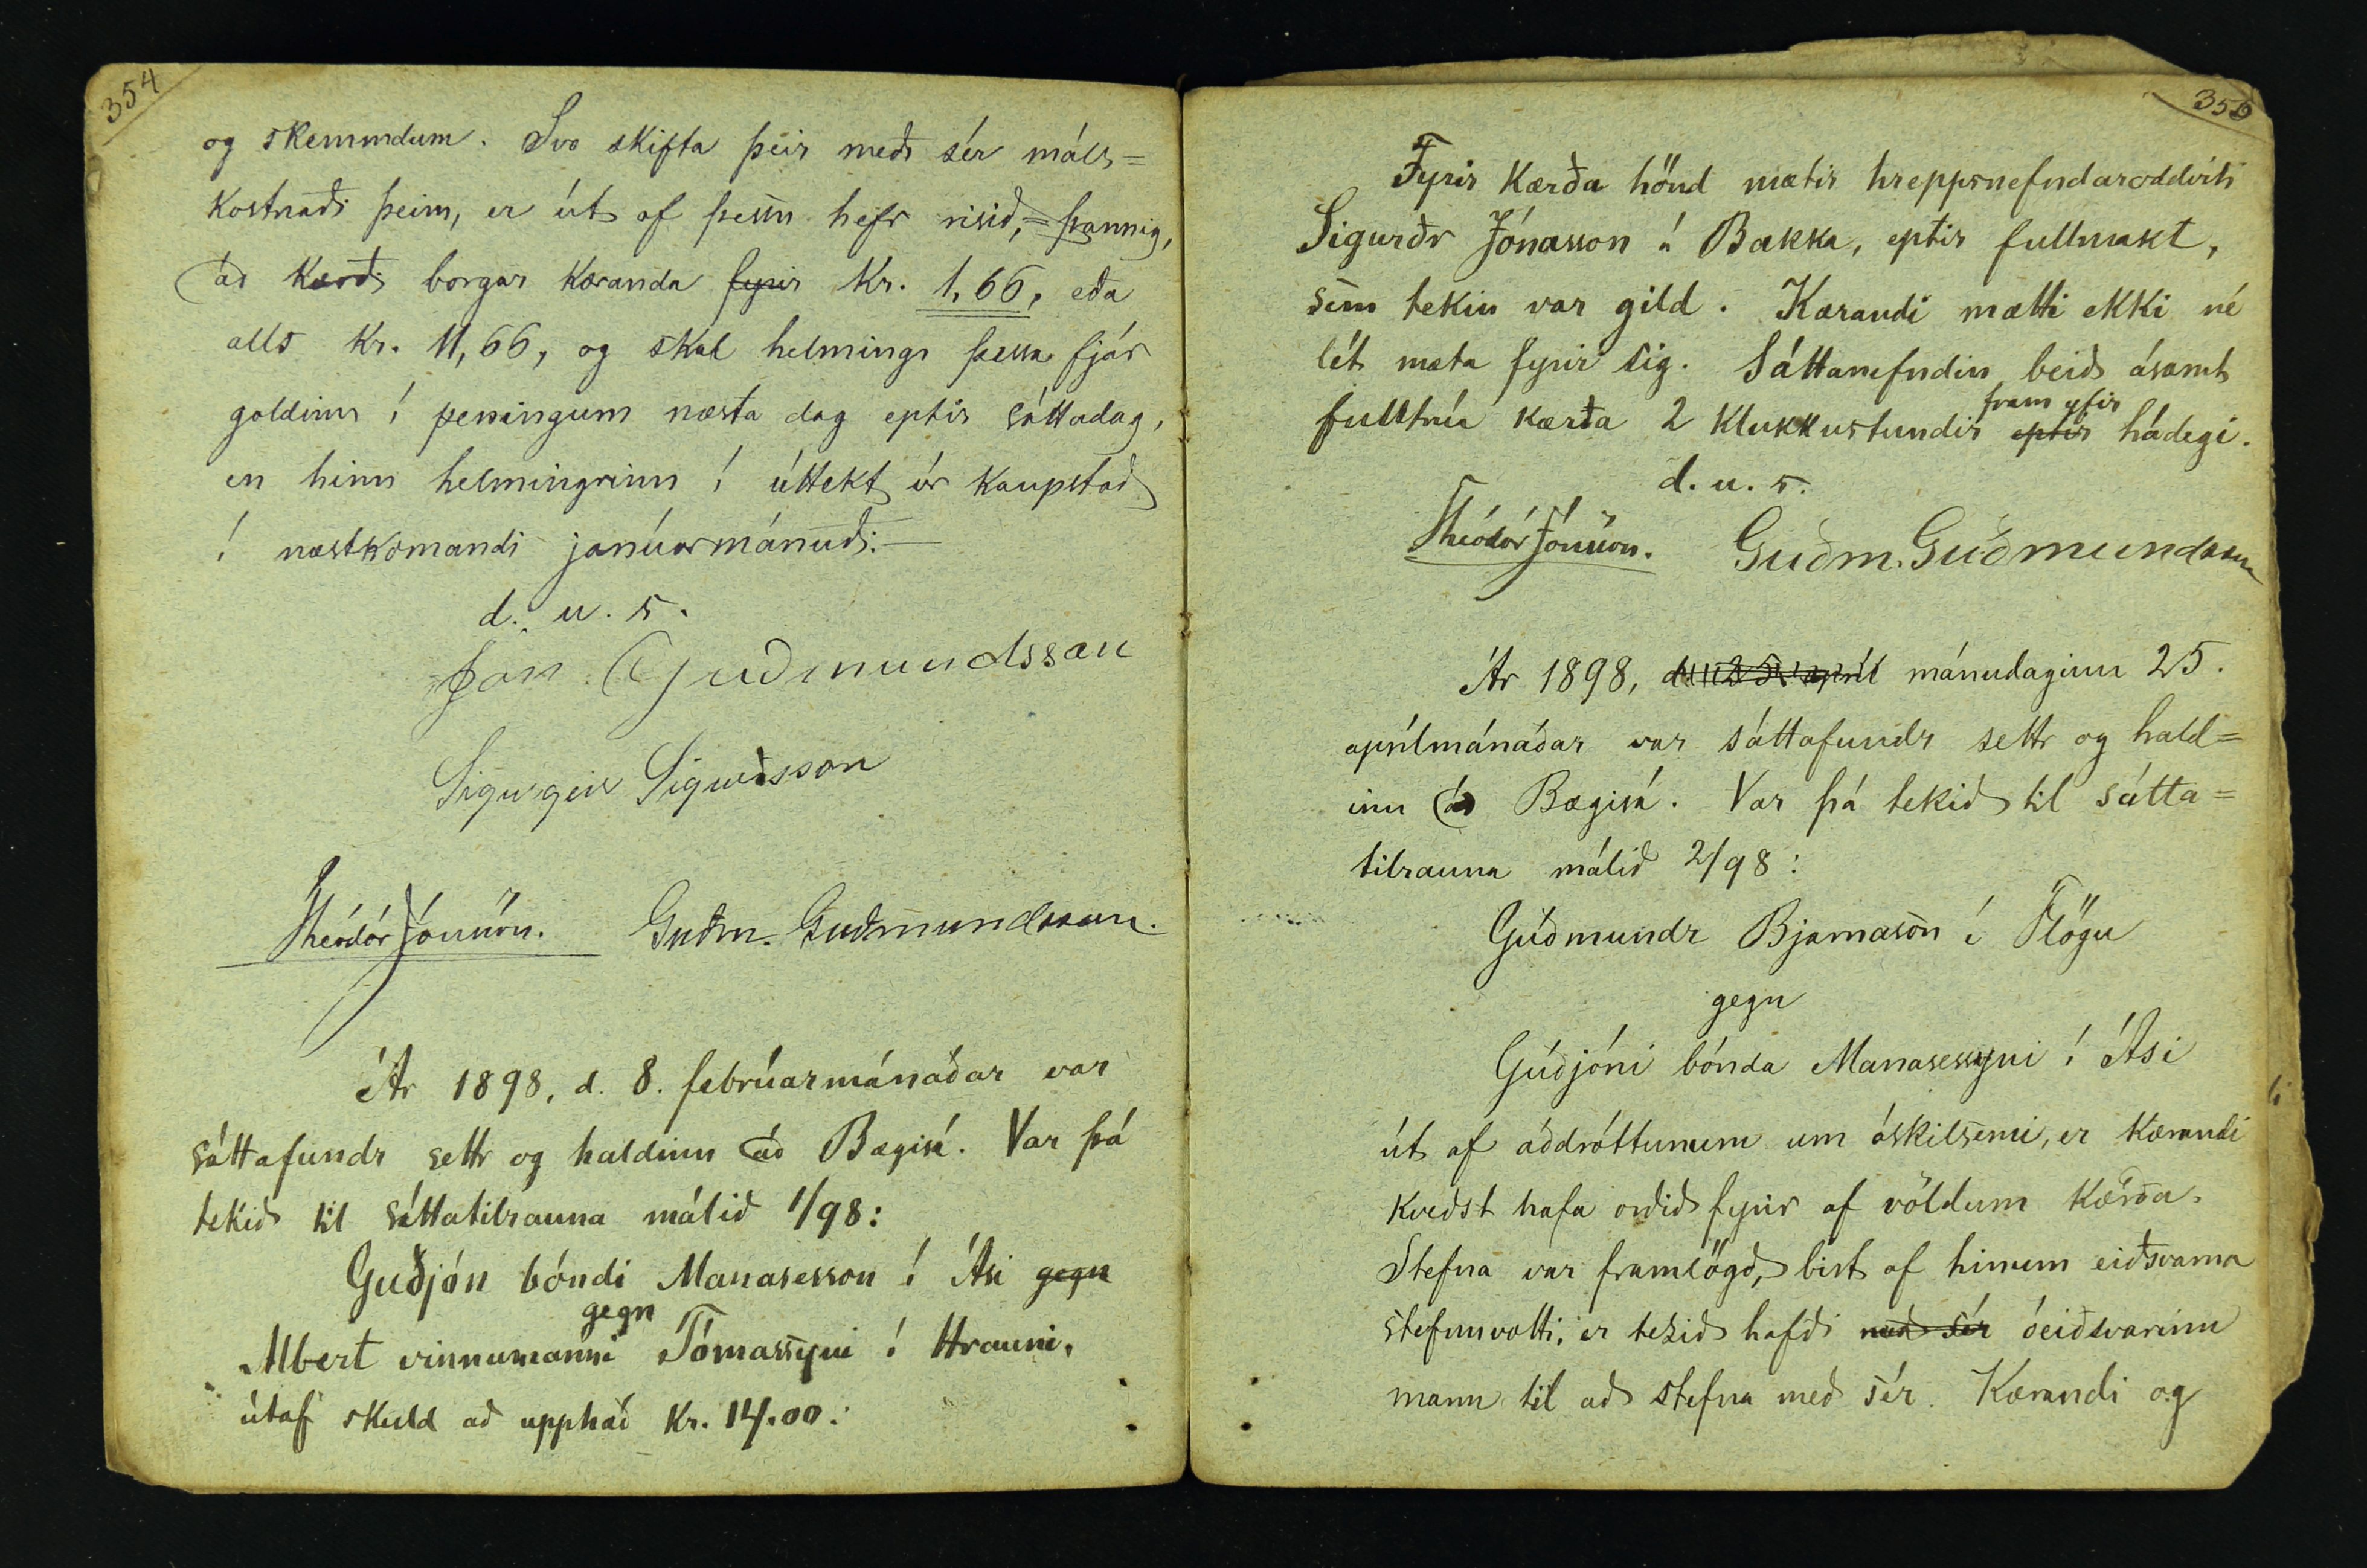 354
og skemmdum. Svo skifta þeir með sér máls=
kostnaði þeim, er út af þessu hefr risið, = þannig,
að kærði borgar kæranda fyrir kr. 1,66, eða
alls kr. 11,66, og skal helmingr þessa fjár
goldinn í peningum næsta dag eptir sáttadag,
en hinn helmingrinn í úttekt úr kaupstað
í næstkomandi janúarmánuði. —
d. u. s.
Jón Guðmundsson
Sigurgeir Sigurðsson
Theódór Jónsson. Guðm. Guðmundsson.
Ár 1898, d. 8. febrúarmánaðar var
sáttafundr settr og haldinn að Bægisá. Var þá
tekið til sáttatilrauna málið 1/98:
Guðjón bóndi Manasesson í Ási gegn
gegn
Albert vinnumanni Tómassyni í Hrauni,
útaf skuld að upphæð kr. 14.00.
355
Fyrir kærða hönd mætir hreppsnefndaroddviti
Sigurðr Jónasson á Bakka, eptir fullmakt,
sem tekin var gild. Kærandi mætti ekki né
lét mæta fyrir sig. Sáttanefndin beið ásamt
fram yfir
fulltrúa kærða 2 klukkustundir eptir hádegi.
d. u. s.
Theódór Jónsson. Guðm. Guðmundsson
Ár 1898, d. 25. apríl mánudaginn 25.
aprílmánaðar var sáttafundr settr og hald=
inn að Bægisá. Var þá tekið til sátta=
tilrauna málið 2/98:
Guðmundr Bjarnason í Flögu
gegn
Guðjóni bónda Manasessyni í Ási
út af aðdróttunum um óskilsemi, er kærandi
kveðst hafa orðið fyrir af völdum kærða.
Stefna var framlögð, birt af hinum eiðsvarna
stefnuvotti, er tekið hafði með sér óeiðsvarinn
mann til að stefna með sér. Kærandi og